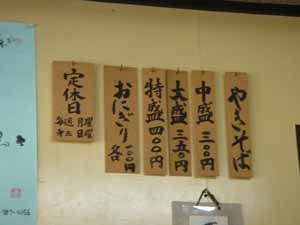 やきそば
中盛 三〇〇円
大盛 三五〇円
特盛 四〇〇円
おにぎり 各一〇〇円
定休日
毎週 月曜
第三 日曜